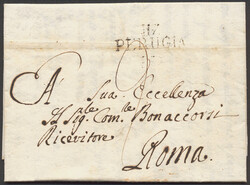 117
PERUGIA
A Sua Eccellenza
Il Sig. Com. le Bonaccorsi
Ricevitore
Roma.